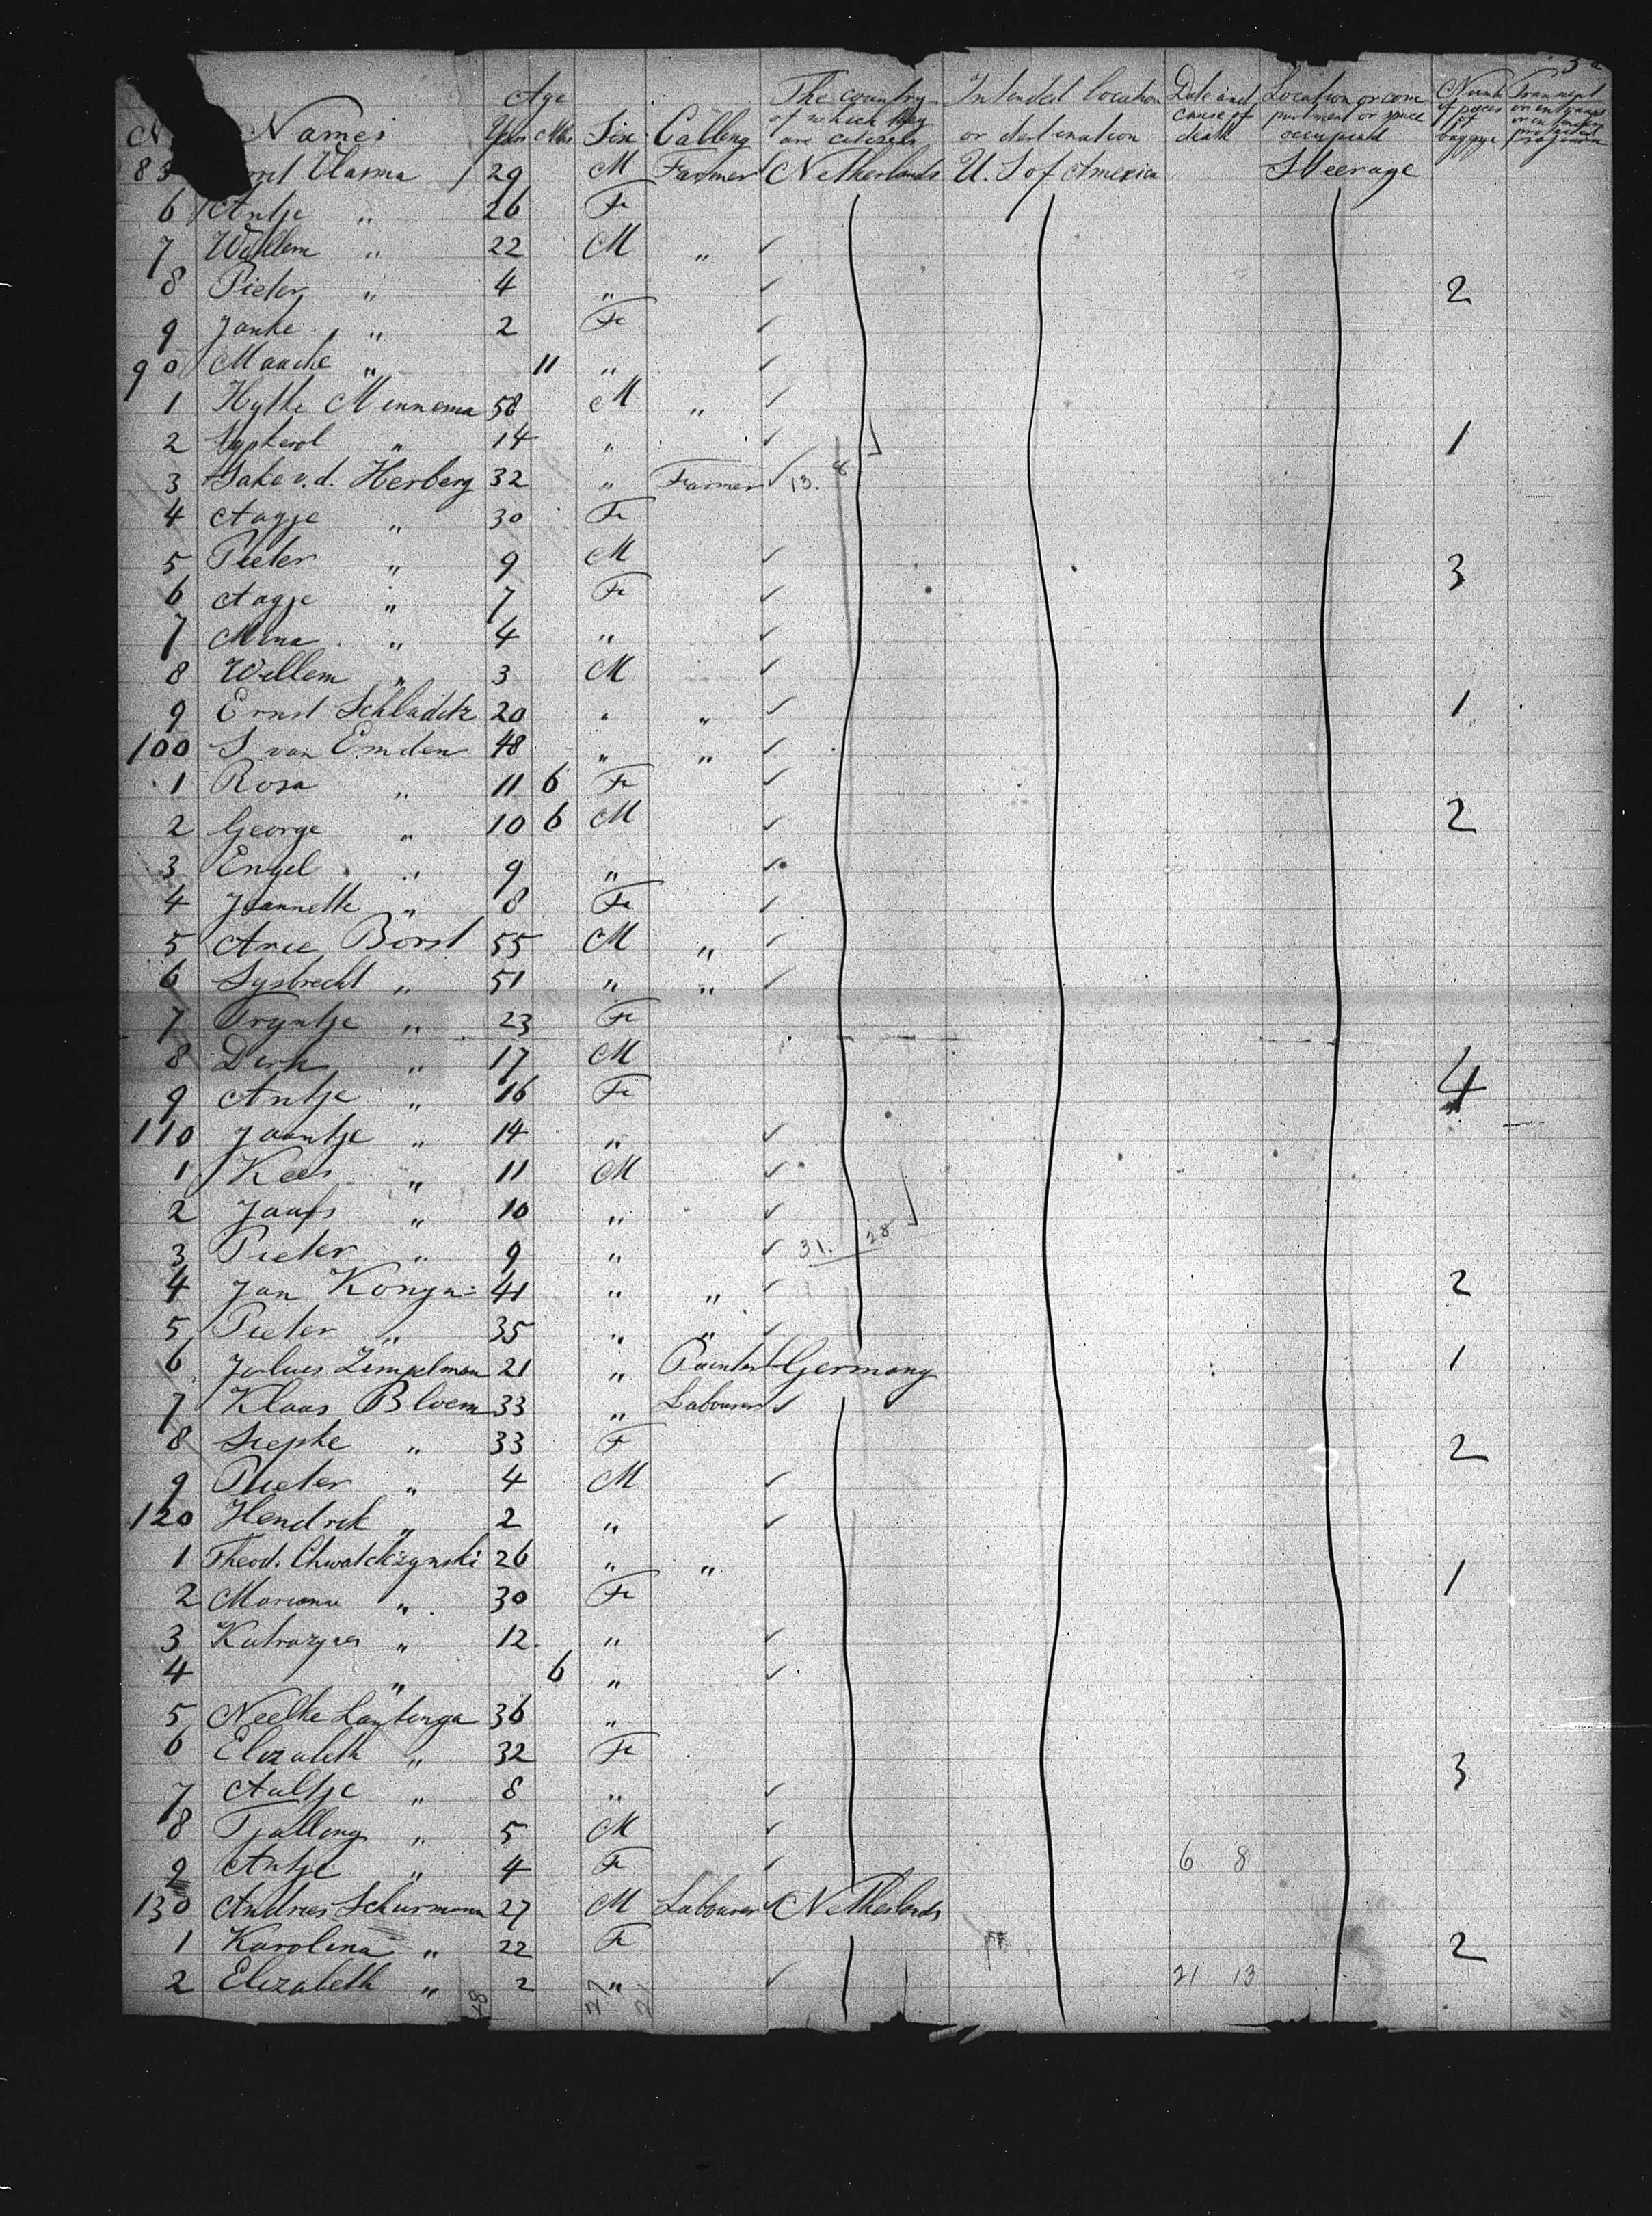 Age The country Intended location Date and Location or com Numb Transient
N Names Years Mos Sex Calling of which they are citizens or destination cause of death partment or space occupied of pieces of baggage or in transit or in tended protracted sojourn
85 Vlasma 29 M Farmer Netherlands U. S of America Steerage
6 Antje " 26 Fe
7 Willem " 22 M "
8 Pieter " 4 " 2
9 Janke " 2 Fe
90 Maaike " 11 "
1 Hylke Minnema 58 M "
2 " 14 " 1
3 Sake v. d. Herberg 32 " Farmer 13. 8
4 Aagje " 30 Fe
5 Pieter " 9 M 3
6 Aagje " 7 Fe
7 Mina " 4 "
8 Willem " 3 M
9 Ernst Schladitz 20 " " 1
100 S. van Emden 48 " "
1 Rosa " 11 6 Fe
2 George " 10 6 M 2
3 Engel " 9 "
4 Jeannette " 8 Fe
5 Arie Borst 55 M "
6 Sysbrecht " 51 " "
7 Tryntje " 23 Fe
8 Dirk " 17 M
9 Antje " 16 Fe 4
110 Jaantje " 14 "
1 Kees " 11 M
2 Jaap " 10 "
3 Pieter " 9 " 31. 28
4 Jan Konyn 41 " " 2
5 Pieter " 35 " "
6 Julius Zimpelman 21 " Painter Germany 1
7 Klaas Bloem 33 " Labourer
8 Siepke " 33 F 2
9 Pieter " 4 M
120 Hendrik " 2 "
1 Theod. Chwalckzynski 26 " "
2 Mariana " 30 Fe 1
3 Katrazyna " 12 "
4 " 6 "
5 Neelke Lautenga 36 "
6 Elizabeth " 32 Fe 3
7 Aaltje " 8 "
8 Tjalling " 5 M
9 Antje " 4 Fe 6 8
130 Andries Schurmann 27 M Labourer Netherlands
1 Karolina " 22 Fe 2
2 Elizabeth " 2 " 21 13
48